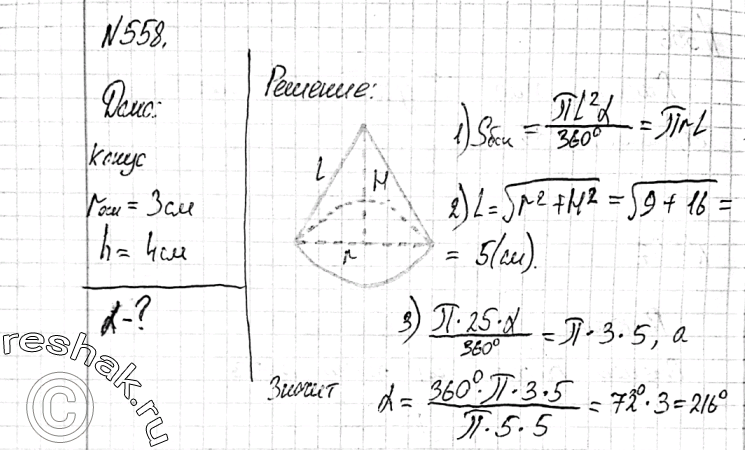 N558.
Дано:
конус
rосн = 3см
h = 4см
α - ?
Решение:
L
H
r
1) Sбок = πL²α/360° = πrL
2) L = √(r² + H²) = √(9 + 16) =
= 5(см).
3) π·25·α/360° = π·3·5, а
Значит α = 360°·π·3·5/π·5·5 = 72°·3 = 216°
© reshak.ru